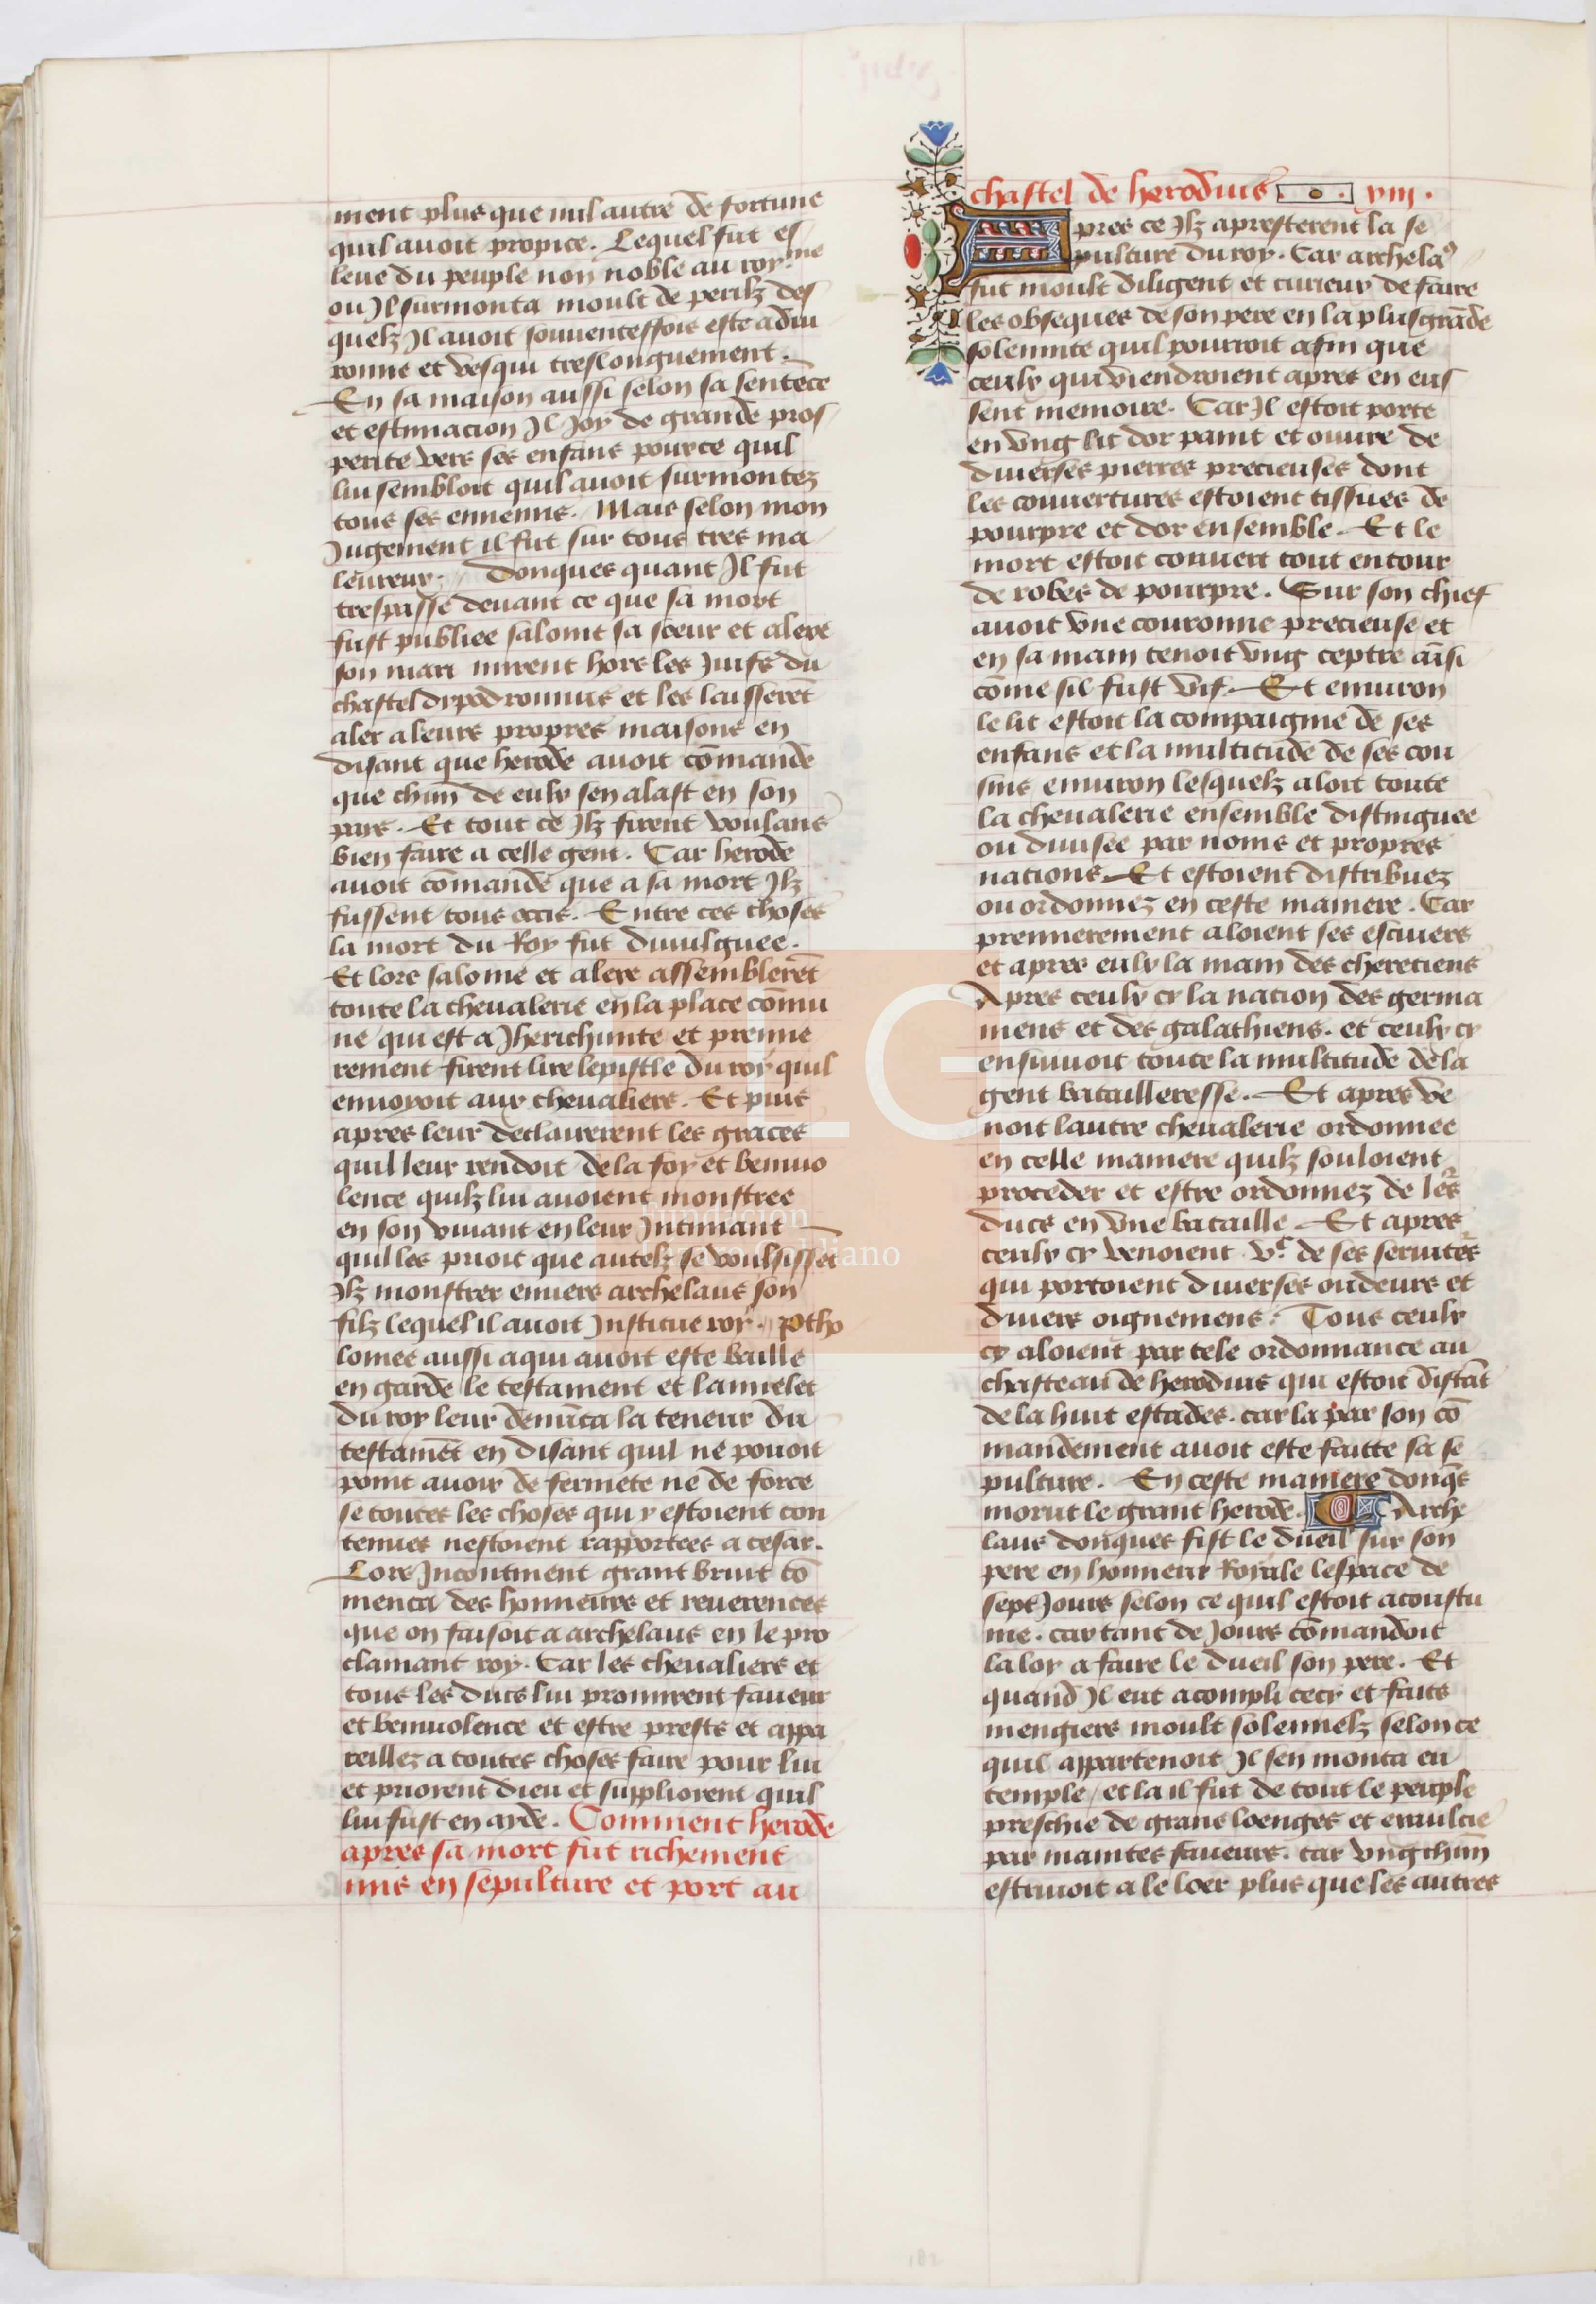 ment plus que nul autre de fortune
quil auoit propice. Lequel fut es
leue du peuple non noble au roy.me
ou Il surmonta moult de perilz des
quelz Il auoit souuenteffois este adui
ronne et vesqui treslonguement.
En sa maison aussi selon sa sentēce
et estimacion Il Joy de grande pros
perite vers ses enfans pource quil
lui sembloit quil auoit surmontez
tous ses ennemis. Mais selon mon
Jugement il fut sur tous tres ma
leureux. Donques quant Il fut
trespasse deuant ce que sa mort
fust publiee salome sa soeur et alexe
son mari mirent hors les Juifs du
chastel dypodromus et les laisserēt
aler a leurs propres maisons en
disant que herode auoit cōmande
que chūn de eulx sen alast en son
pays. Et tout ce Ilz firent voulans
bien faire a celle gent. Car herode
auoit cōmande que a sa mort Ilz
fussent tous occis. Entre ces choses
la mort du Roy fut diuulguee.
Et lors salome et alexe assemblerēt
toute la cheualerie en la place cōmu
ne qui est a Jherichunte et premie
rement firent lire lepistle du roy quil
enuoyoit aux cheualiers. Et puis
apres leur declairerent les graces
quil leur rendoit de la foy et beniuo
lence quilz lui auoient monstree
en son viuant en leur Intimant
quil les prioit que autelz se voulsissēt
Ilz monstrer enuers archelaus son
filz lequel il auoit Institue roy. Ptho
lomee aussi a qui auoit este baille
en garde le testament et lannelet
du roy leur denūca la teneur du
testamēt en disant quil ne pouoit
point auoir de fermete ne de force
se toutes les choses qui y estoient con
tenues nestoient rapportees a cesar.
Lors Incontinent grant bruit cō
menca des honneurs et reuerences
que on faisoit a archelaus en le pro
clamant roy. Car les cheualiers et
tous les ducs lui promirent faueur
et beniuolence et estre prests et appa
reillez a toutes choses faire pour lui
et priorent dieu et supplioren​t quil
lui fust en aide. Comment herode
apres sa mort fut richement
mis en sepulture et port au
chastel de herodius . viij.
Apres ce Ilz apresterent la se
pulture du roy. Car archelaꝰ
fut moult diligent et curieux de faire
les obseques de son pere en la plus grāde
solemnite quil pourroit afin que
ceulx qui viendroient apres en eus
sent memoire. Car Il estoit porte
en vng lit dor paint et ouure de
diuerses pierres precieuses dont
les couuertures estoient tissues de
pourpre et dor ensemble. Et le
mort estoit couuert tout entour
de robes de pourpre. Sur son chief
auoit vne couronne precieuse et
en sa main tenoit vng ceptre aīsi
cōme sil fust vif. Et enuiron
le lit estoit la compaignie de ses
enfans et la multitude de ses cou
sins enuiron lesquelz aloit toute
la cheualerie ensemble distinguee
ou diuisee par noms et propres
nations. Et estoient distribuez
ou ordonnez en ceste maniere. Car
premierement aloient ses escuiers
et apres eulx la main des chereciens
Apres ceulx cy la nation des germa
niens et des galathiens. et ceulx cy
ensuiuoit toute la multitude de la
gent batailleresse. Et apres ve
noit lautre cheualerie ordonnee
en celle maniere quilz souloient
proceder et estre ordonnez de les
ducs en vne bataille. Et apres
ceulx cy venoient v.c de ses seruitēs
qui portoient diuerses oudeurs et
diuers oignemens. Tous ceulx
cy aloient par tele ordonnance au
chasteau de herodius qui estoit distāt
de la huit estades. car la par son cō
mandement auoit este faitte sa se
pulture. En ceste maniere donq̄s
morut le grant herode. Arche
laus donques fist le dueil sur son
pere en honneur Royale lespace de
sept Jours selon ce quil estoit acoustu
me. car tant de Jours cōmandoit
la loy a faire le dueil son pere. Et
quand Il eut acompli cecy et fais
mengiers moult solennelz selon ce
quil appartenoit Il sen monta eu
temple / et la il fut de tout le peuple
preschie de grans loenges et exaulcie
par maintes faueurs. car vng chūn
estriuoit a le loer plus que les autres